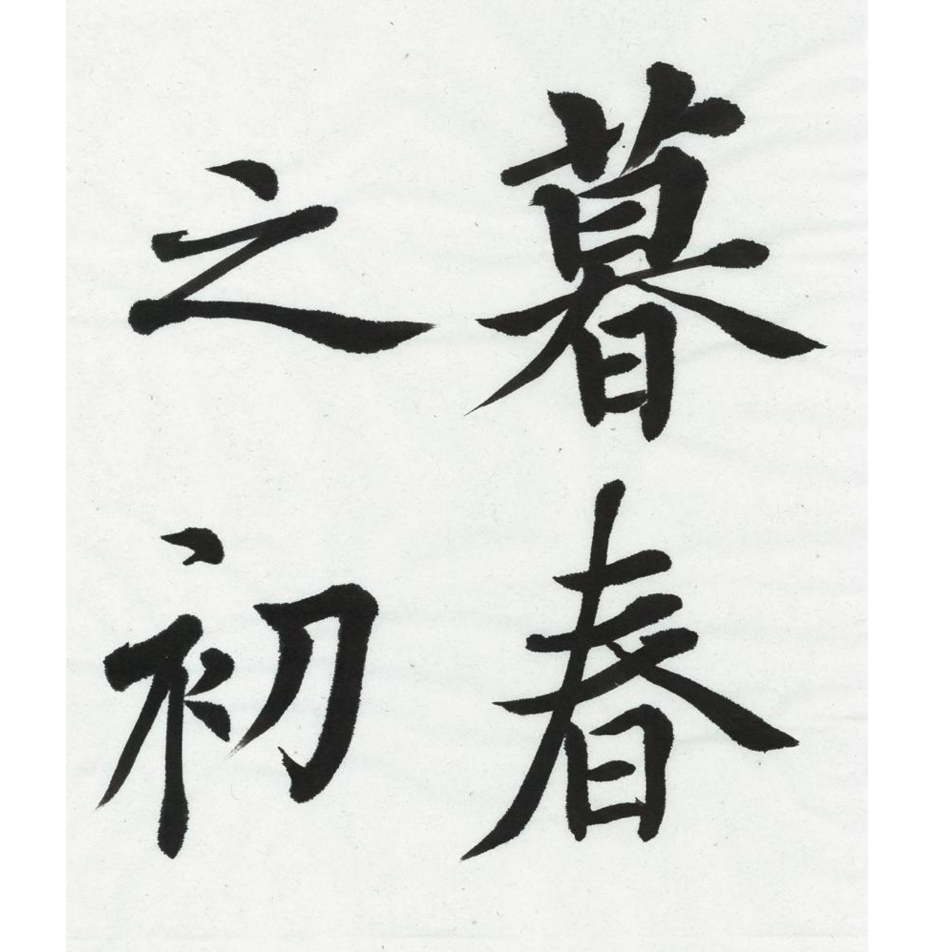 暮春
之初